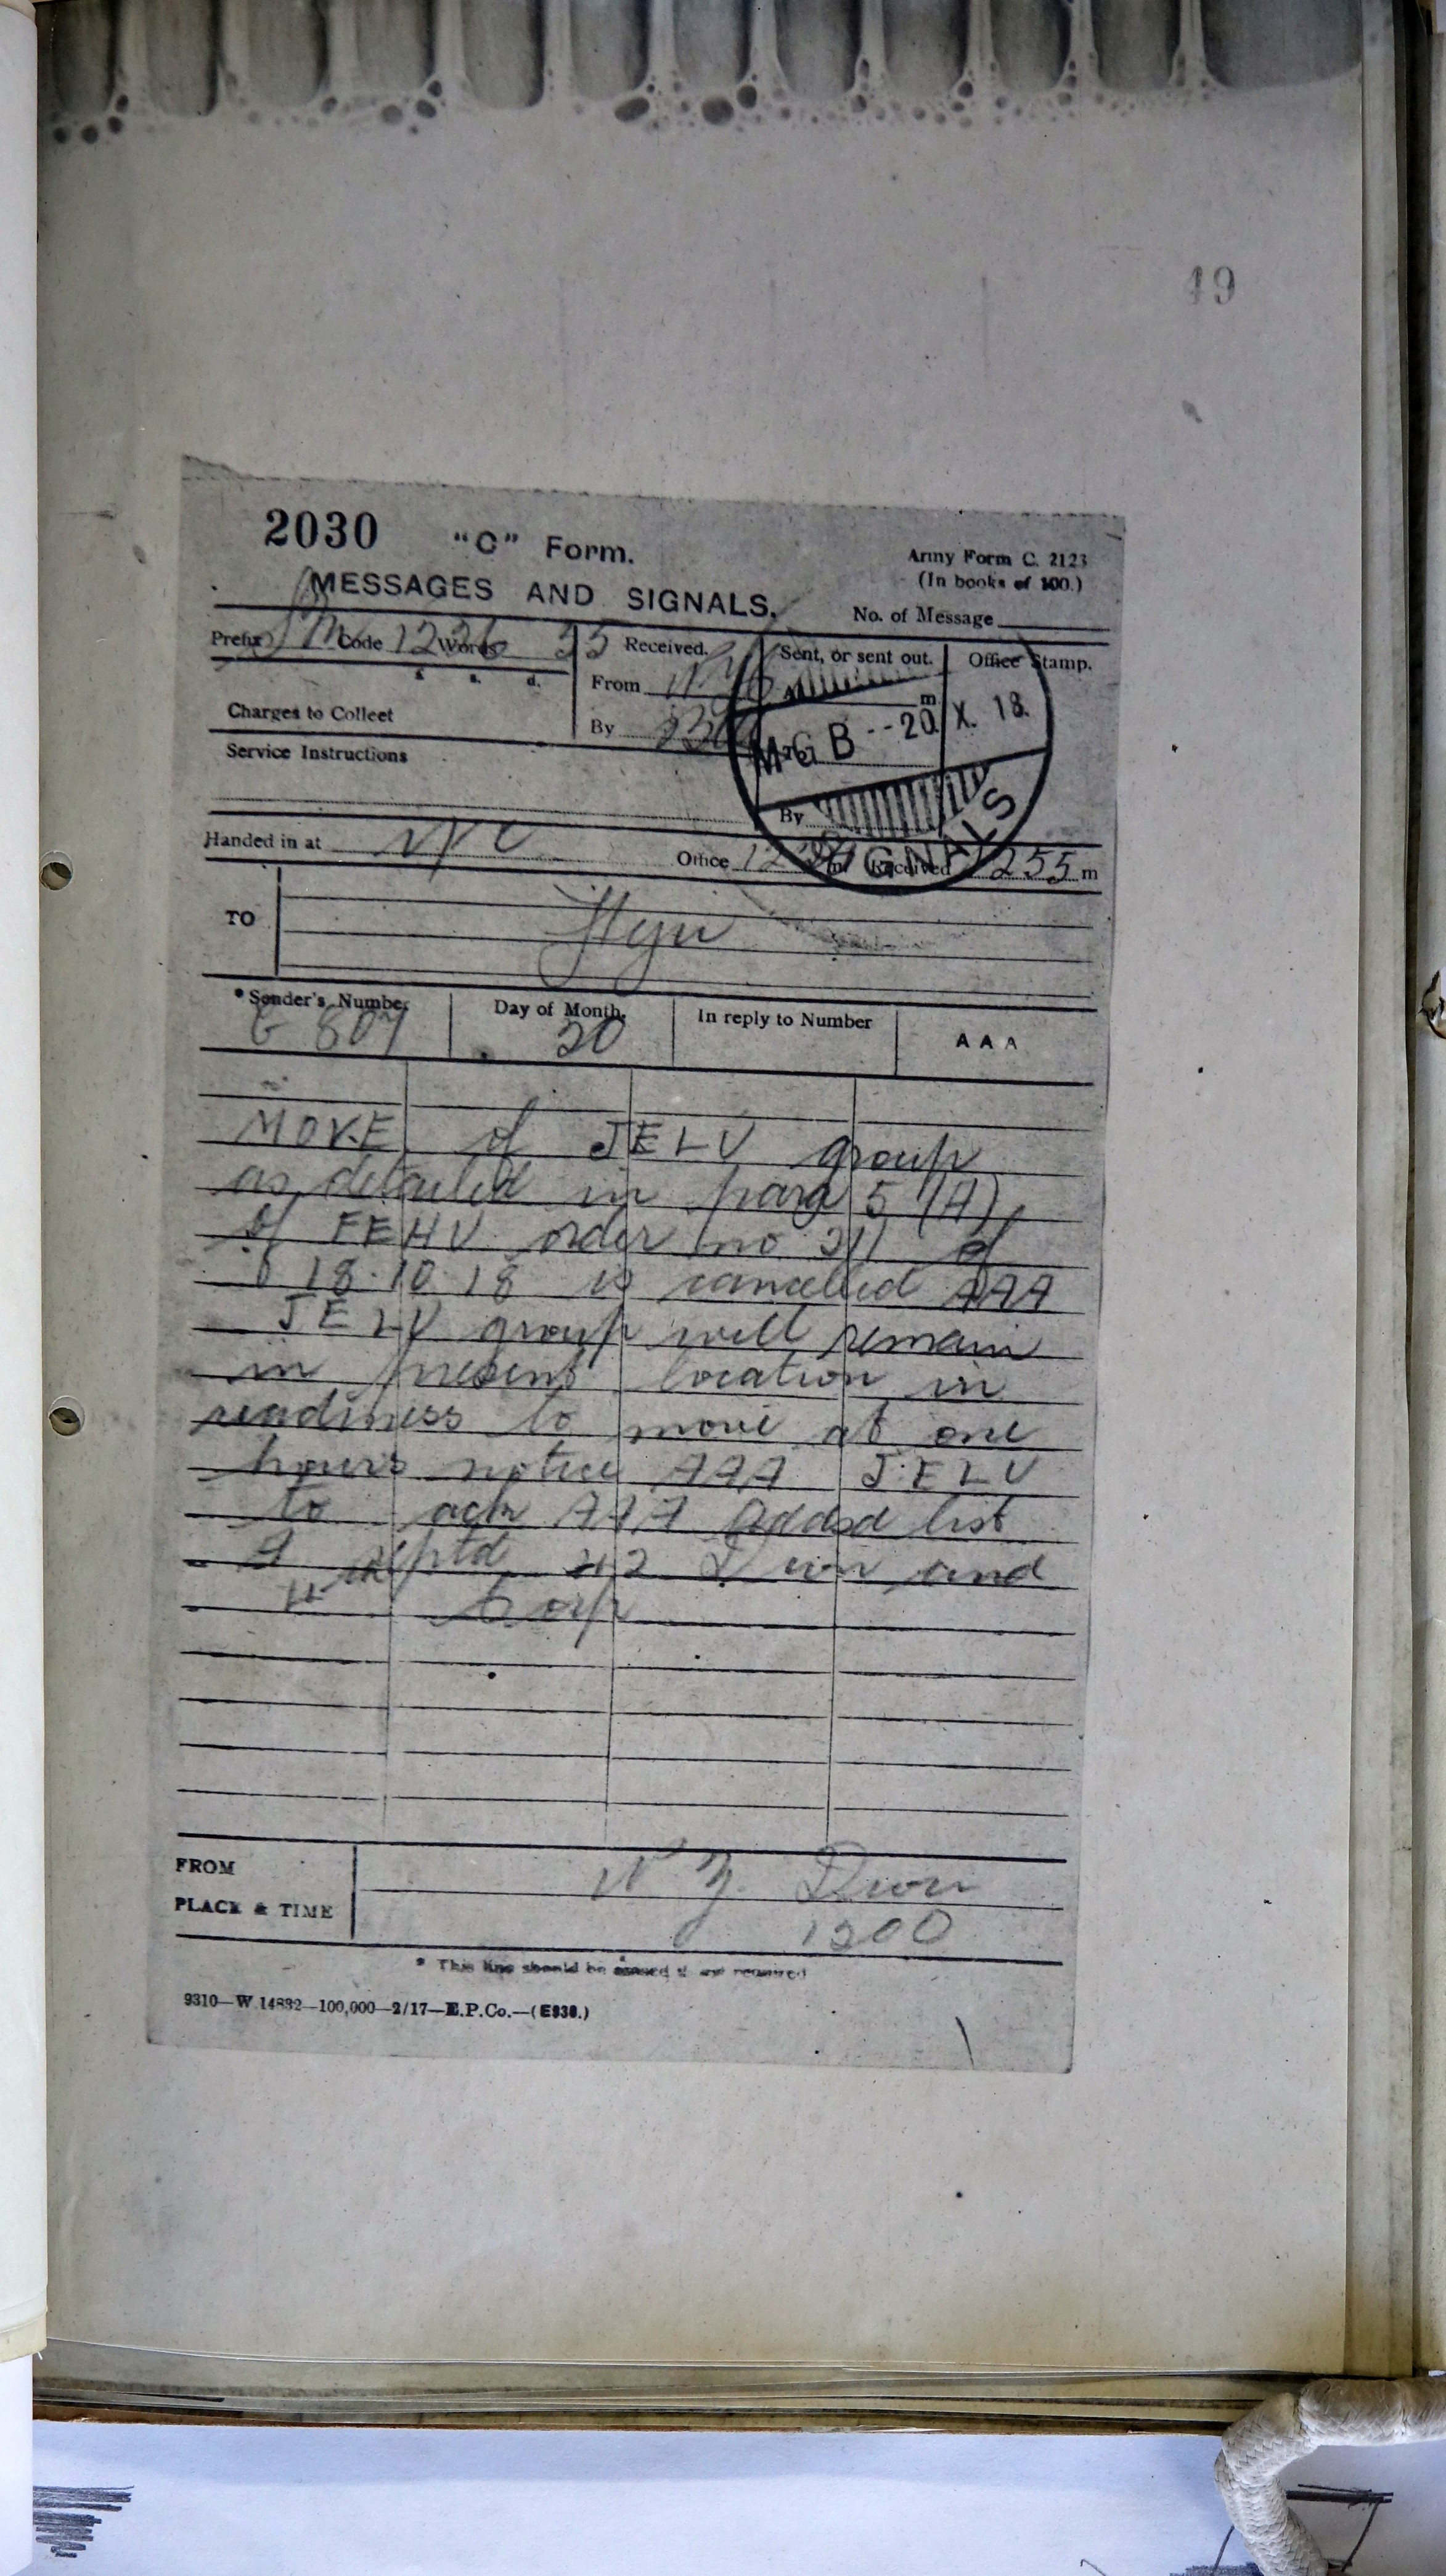 49
2030 "C" Form. Army Form C. 2123
(In books of 100.)
MESSAGES AND SIGNALS. No. of Message
Prefix SM Code 1226 Words 55 Received. Sent, or sent out. Office Stamp.
£ s. d. From At m
Charges to Collect By To
M G B --20. X. 18.
SIGNALS
Service Instructions
By
Handed in at Office 12 m Received 1255 m
TO
*Sender's Number G 807 Day of Month 20 In reply to Number AAA
MOVE of JELU group
as detailed in para 5 (A)
of FEHU order no 211 of
18.10.18 is cancelled AAA
JELU group will remain
in present location in
readiness to move at one
hours notice AAA JELU
to ack AAA Addsd list
A reptd 42 Divn and
Corps
FROM N Z Divn
PLACE & TIME 1200
* This line should be erased if not required
9310—W.14832—100,000—2/17—E.P.Co.—(E930.)